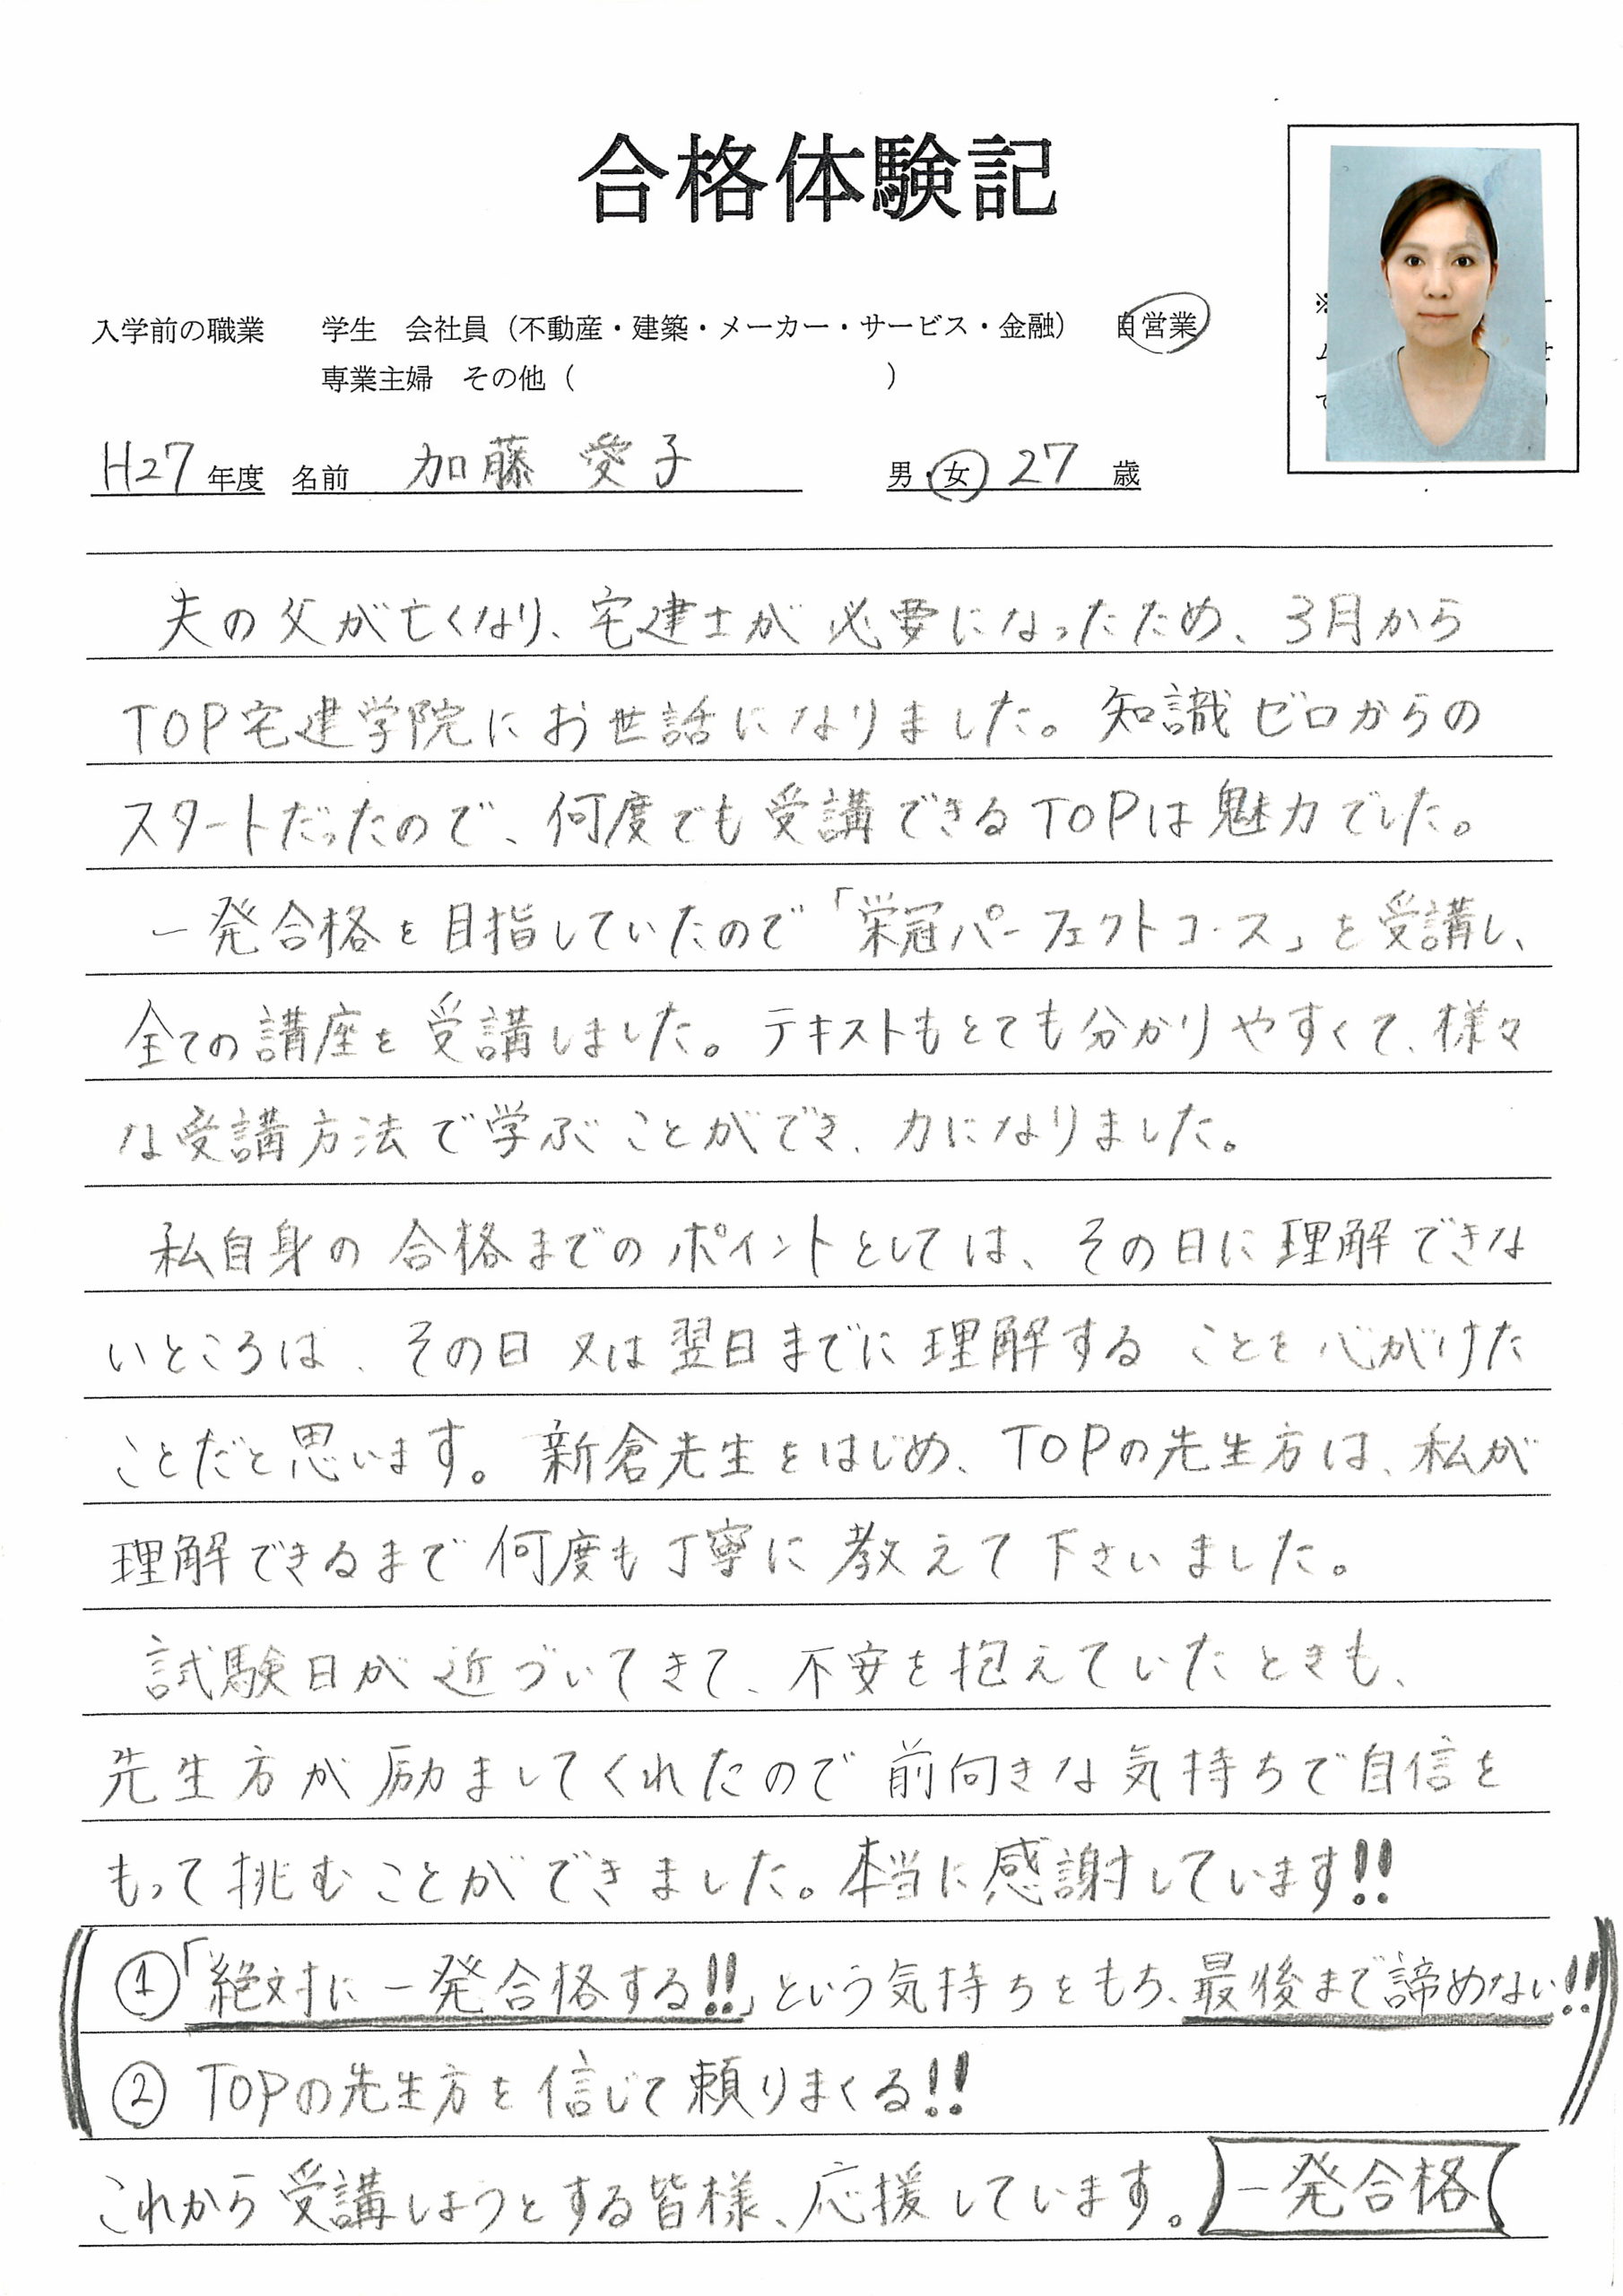 合格体験記
入学前の職業　学生　会社員（不動産・建築・メーカー・サービス・金融）　自営業
専業主婦　その他（　　　　　　　　　　　）
H27年度　名前　加藤 愛子　男・女　27　歳
夫の父が亡くなり、宅建士が必要になったため、3月から
TOP宅建学院にお世話になりました。知識ゼロからの
スタートだったので、何度でも受講できるTOPは魅力でした。
一発合格を目指していたので「栄冠パーフェクトコース」を受講し、
全ての講座を受講しました。テキストもとても分かりやすくて、様々
な受講方法で学ぶことができ、力になりました。
私自身の合格までのポイントとしては、その日に理解できな
いところは、その日又は翌日までに理解することを心がけた
ことだと思います。新倉先生をはじめ、TOPの先生方は、私が
理解できるまで何度も丁寧に教えて下さいました。
試験日が近づいてきて、不安を抱えていたときも、
先生方が励ましてくれたので前向きな気持ちで自信を
もって挑むことができました。本当に感謝しています!!
①「絶対に一発合格する!!」という気持ちをもち、最後まで諦めない!!
② TOPの先生方を信じて頼りまくる!!
これから受講しようとする皆様、応援しています。一発合格